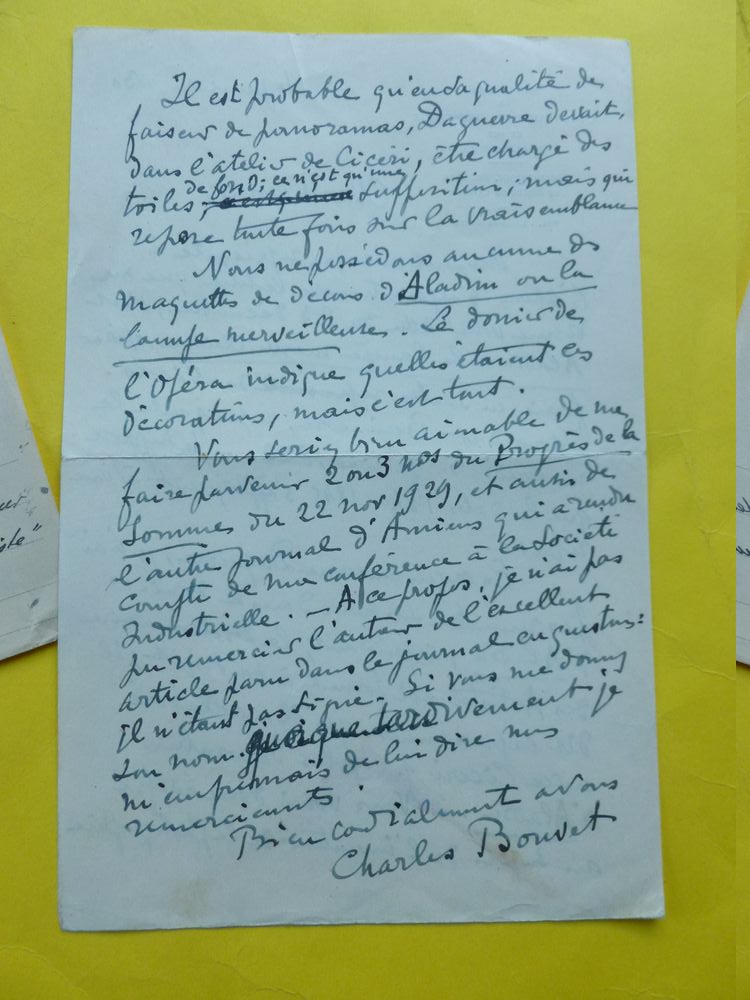 Il est probable qu'en sa qualité de
faiseur de panoramas, Daguerre devait,
dans l'atelier de Ciceri, être chargé des
de fond; ce n'est qu'une
toiles, supposition; mais qui
repose toute fois sur la vraisemblance
Nous ne possédons aucune des
maquettes de décors d'Aladin ou la
lampe merveilleuse. Le dossier de
l'Opéra indique quelles étaient ces
décorations, mais c'est tout.
Vous seriez bien aimable de me
faire parvenir 2 ou 3 nos du Progrès de la
Somme du 22 nov 1929, et aussi de
l'autre journal d'Amiens qui a rendu
compte de ma conférence à la Société
Industrielle. — A ce propos, je n'ai pas
pu remercier l'auteur de l'excellent
article paru dans le journal en question:
il n'était pas signé. Si vous me donniez
son nom quoique tardivement je
m'empresserais de lui dire mes
remerciements.
Bien cordialement à vous
Charles Bouvet